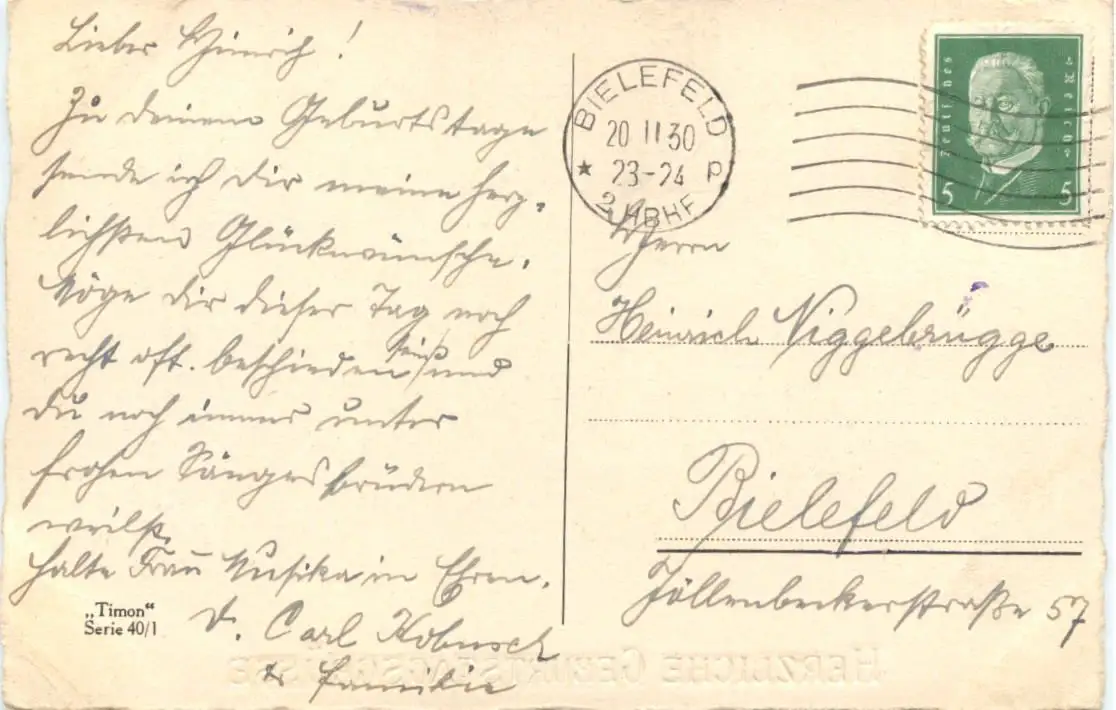 Lieber Heinrich!
Zu deinem Geburtstage
sende ich Dir meine herz-
lichsten Glückwünsche.
Möge Dir dieser Tag noch
recht oft beschieden sein und
Du noch immer unter
frohen Sangesbrüdern
weilst.
Halte Frau Musika in Ehren.
D. Carl Kobusch
& Familie
„Timon“
Serie 40/1
BIELEFELD
20 11 30
23-24
P
2 HBHF
Deutsches Reich
5 5
Herrn
Heinrich Niggebrügge
Bielefeld
Jöllenbeckerstraße 57
HERZLICHE GEBURTSTAGSGRÜSSE